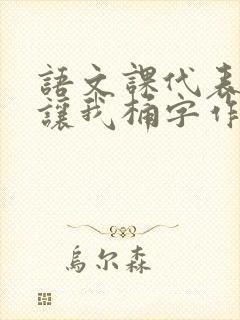 語文課代表
讓我桶字作
烏尔森